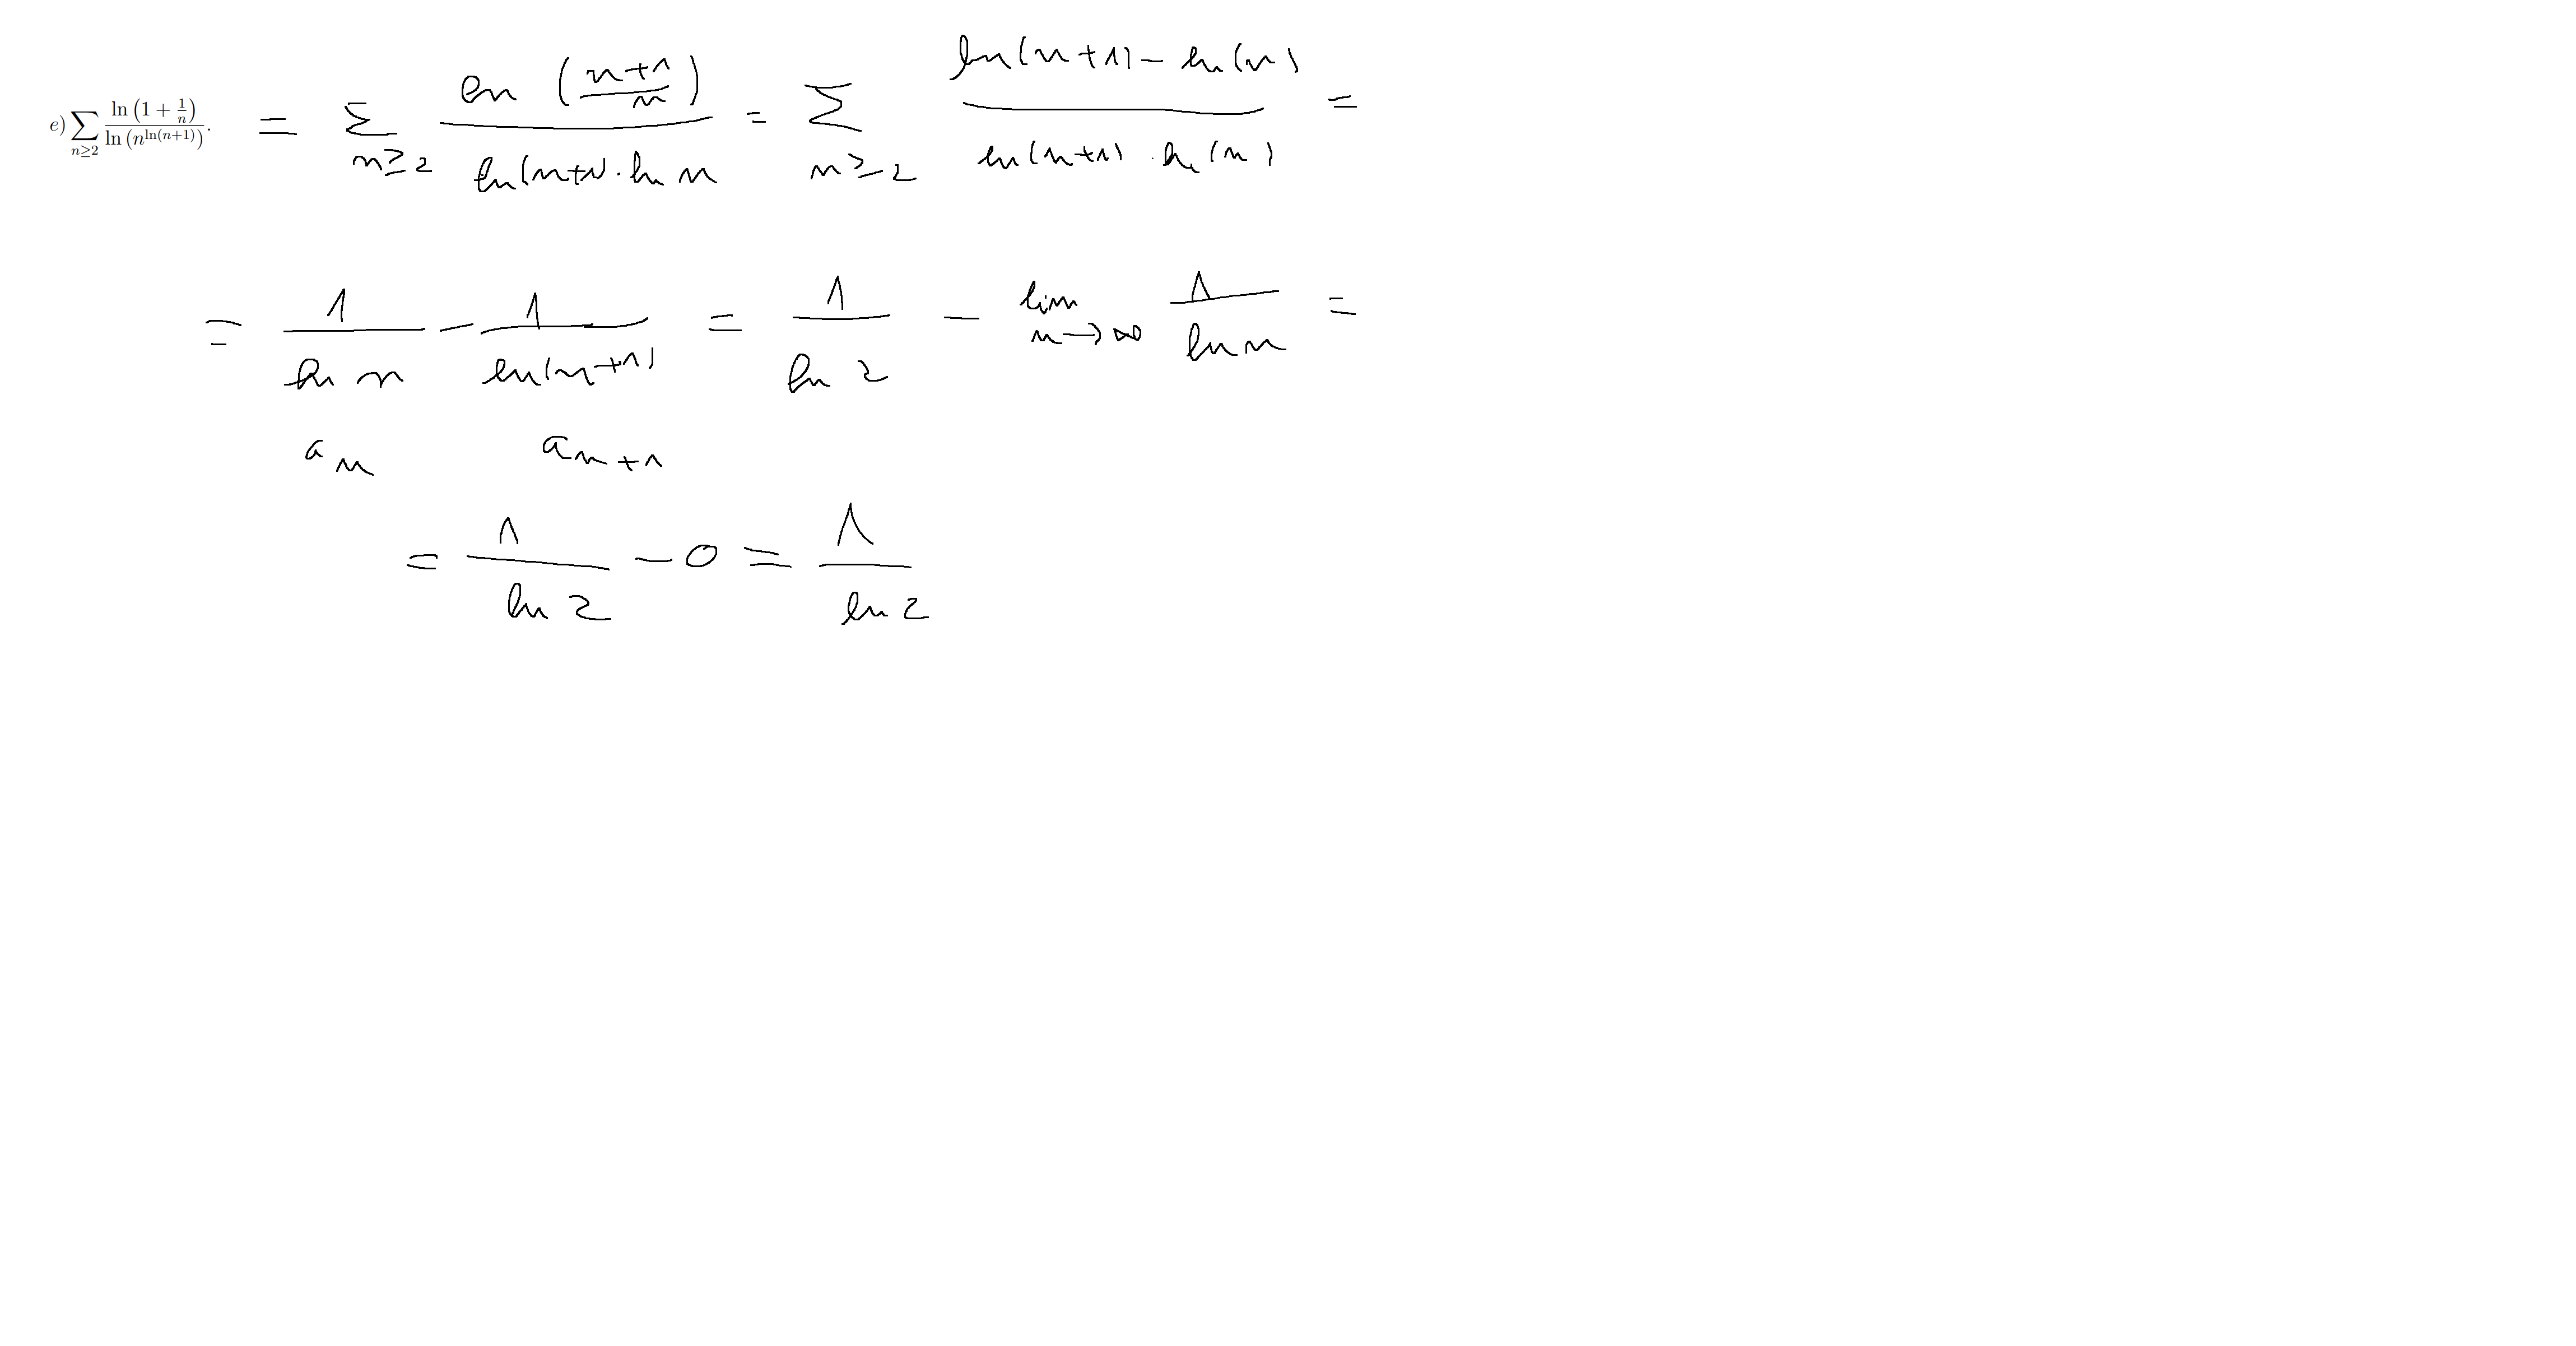 e) ∑_{n≥2} ln(1 + 1/n) / ln(n^{ln(n+1)}). = ∑_{n≥2} ln((n+1)/n) / (ln(n+1) · ln n) = ∑_{n≥2} (ln(n+1) - ln(n)) / (ln(n+1) · ln(n)) =
= 1/(ln n) - 1/(ln(n+1)) = 1/(ln 2) - lim_{n→∞} 1/(ln n) =
a_n a_{n+1}
= 1/(ln 2) - 0 = 1/(ln 2)